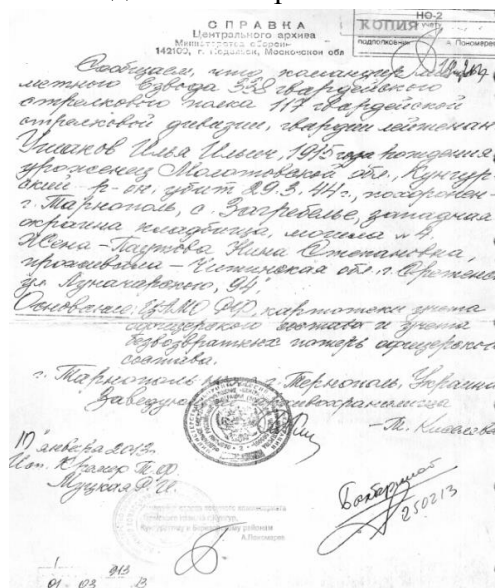 СПРАВКА
Центрального архива
Министерства обороны
142100, г. Подольск, Московской обл
НО-2
КОПИЯ
учету
подполковник
А. Пономарев
Сообщаем, что командир
взвода 338 гвардейского
стрелкового полка 117 гвардейской
стрелковой дивизии, гвардии лейтенант
Ушаков Илья Ильич, 1915 года рождения,
уроженец Молотовской обл., Кунгур-
ский р-он, убит 29.3.44 г., похоронен-
г. Тарнополь, с. Загребелье, западная
окраина кладбища, могила № 4,
Жена - Нина Степановна,
проживала - Читинская обл. г. Сретенск
ул. Луначарского, 94.
Основание: ЦАМО РФ, картотеки учета
офицерского состава и учета
безвозвратных потерь офицерского
состава.
г. Тарнополь г. Тернополь, Украина
Заведующ архивохранилища
10 января 2013г.
Исп.
250213
А.Пономарев
01 - 03